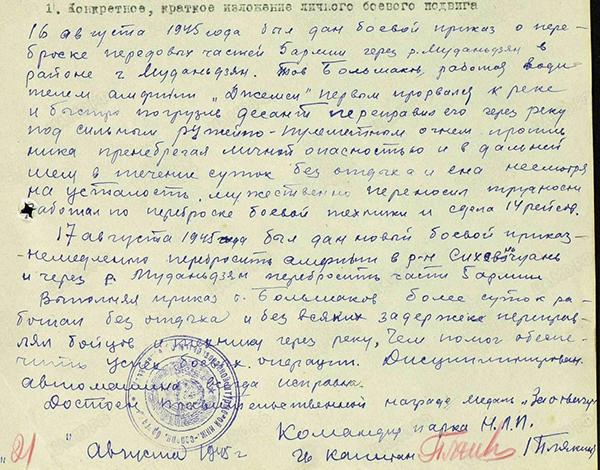 1. Конкретное, краткое изложение личного боевого подвига
16 августа 1945 года был дан боевой приказ о пере-
броске передовых частей 5армии через р. Муданьдзян в
районе г Муданьдзян. Тов Большаков, работая води-
телем амфибии „Джемси" первым прорвался к реке
и быстро погрузив десант переправил его через реку
под сильным ружейно-пулеметном огнем против
ника пренебрегая личной опасностью и в дальней
шем в течение суток без отдыха и сна несмотря
на усталость, мужественно переносил трудности
работал по переброске боевой техники и сдела 14 рейсов.
17 августа 1945 года был дан новый боевой приказ-
-немедленно перебросить амфибии в р-н
и через р. Муданьдзян перебросить части 5 армии
Выполняя приказ т. Большаков более суток ра-
ботал без отдыха и без всяких задержек переправ-
лял бойцов и технику через реку, Чем помог обеспе-
чить успех боевых операции. Дисциплинирован
автомашина всегда исправна.
Достоин правительственной награде медаль „За отвагу"
Командир парка Н.Л.П.
Гв Капитан
" Августа 1945 г
21